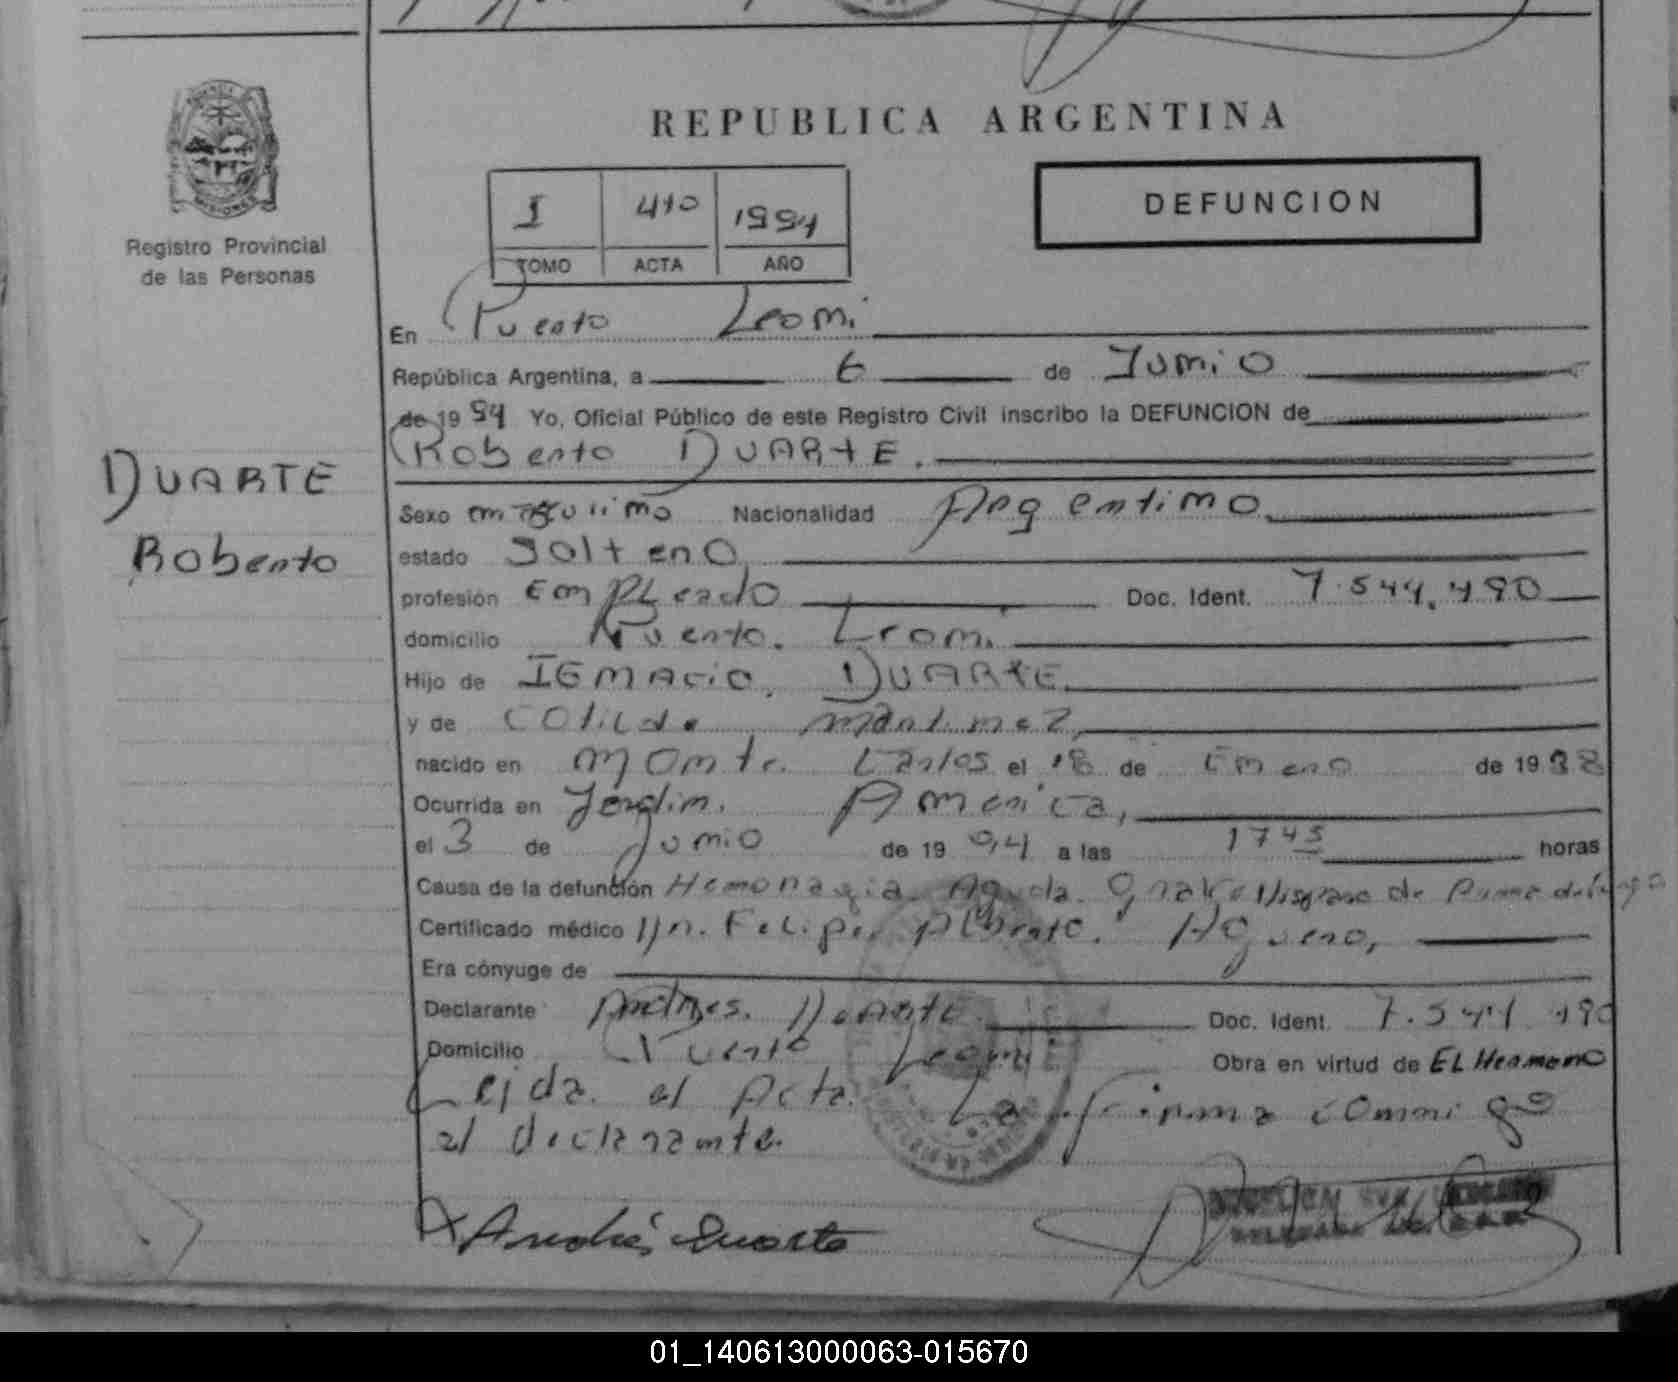 REPUBLICA ARGENTINA
I 410 1994
TOMO ACTA AÑO
DEFUNCION
MISIONES
Registro Provincial
de las Personas
DUARTE
Roberto
En Puerto Leoni
República Argentina, a 6 de Junio
de 1994 Yo, Oficial Público de este Registro Civil inscribo la DEFUNCION de
Roberto DUARTE.
Sexo Nacionalidad Argentino
estado Soltero
profesión Empleado Doc. Ident. 7.544.490
domicilio Puerto Leoni
Hijo de IGNACIO DUARTE
y de Cotilde Martinez
nacido en Monte Carlos el 18 de Enero de 19
Ocurrida en Jardin America,
el 3 de Junio de 1994 a las 1745 horas
Causa de la defunción Hemoragia Aguda de
Certificado médico Dr. Felipe Alberto Aguero,
Era cónyuge de
Declarante Andres Duarte Doc. Ident. 7.544.490
Domicilio Puerto Leoni Obra en virtud de EL Hermano
Leida el Acta La firma conmigo
el declarante.
Andrés Duarte
01_140613000063-015670